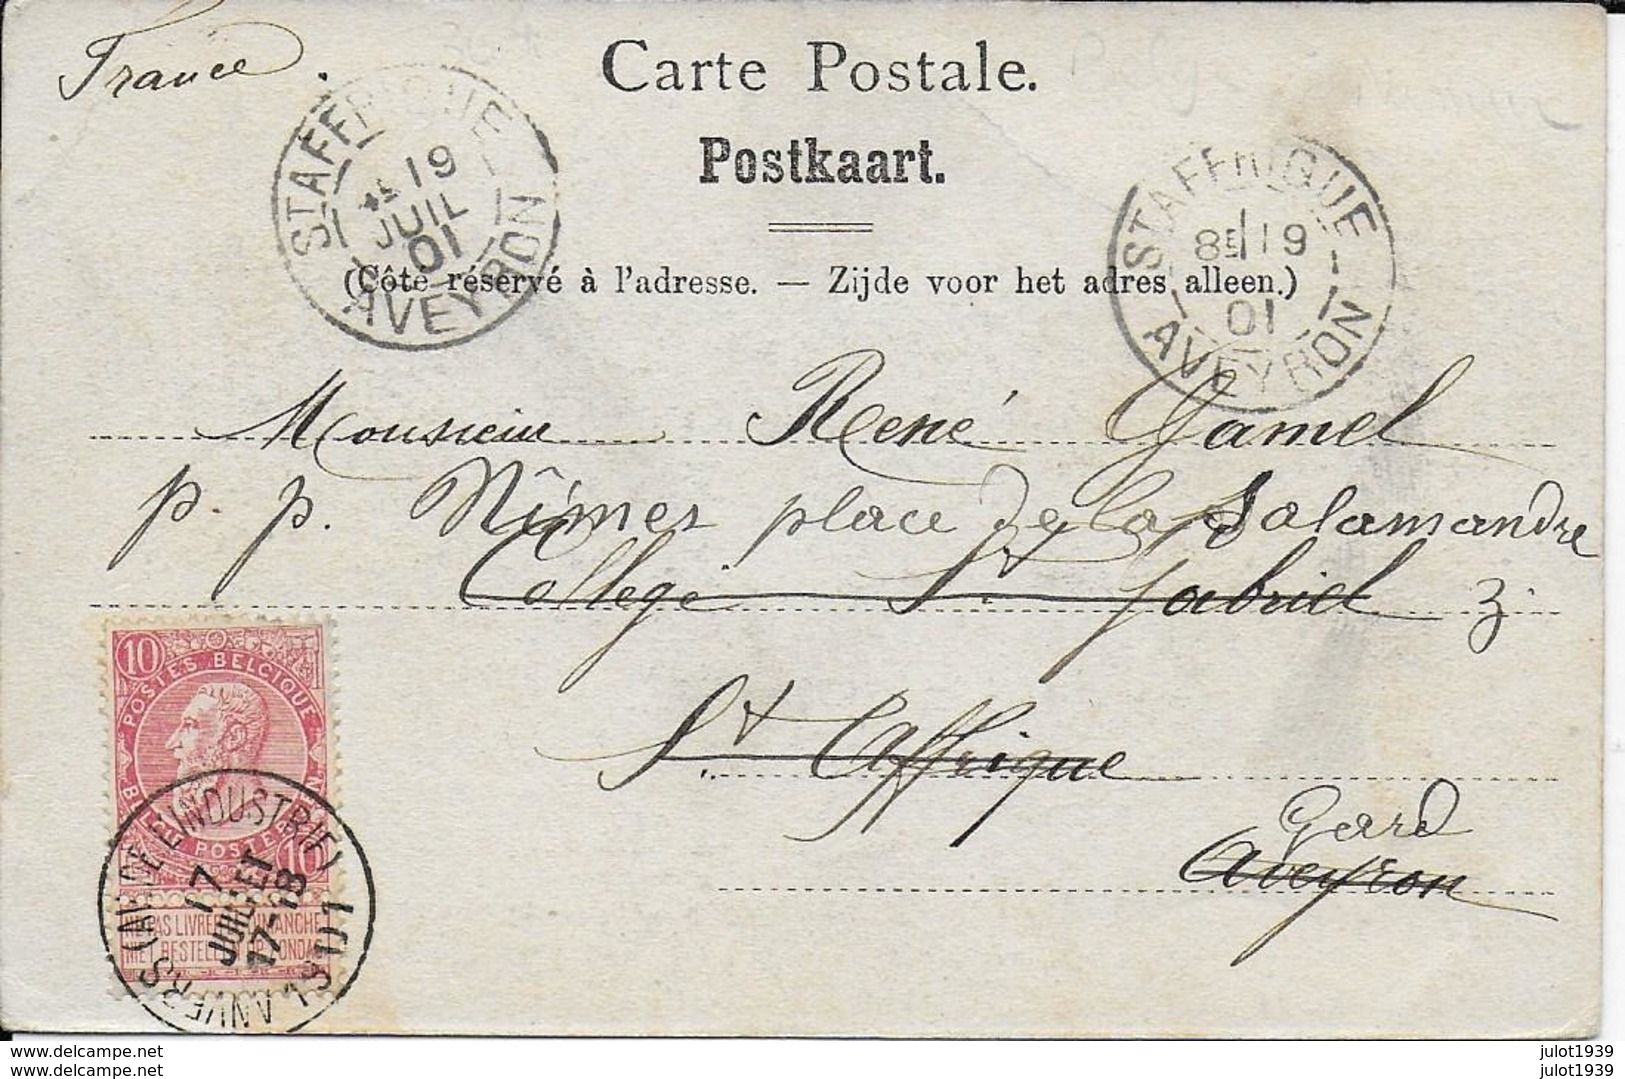 France.
Carte Postale.
Postkaart.
(Côté réservé à l'adresse. — Zijde voor het adres alleen.)
ST AFFRIQUE
19
JUIL
01
AVEYRON
ST AFFRIQUE
8E 19
01
AVEYRON
Monsieur René Gamel
p. p. Nîmes place de la Salamandre
Collège St Gabriel 3
St Affrique
Gard
Aveyron
10
POSTES BELGIQUE
BELGIE POSTERIJEN 10
NE PAS LIVRER LE DIMANCHE
NIET BESTELLEN OP ZONDAG
ANVERS (AV. DE L'INDUSTRIE)
17
JUILLET
17-18
1901
www.delcampe.net julot1939
www.delcampe.net julot1939